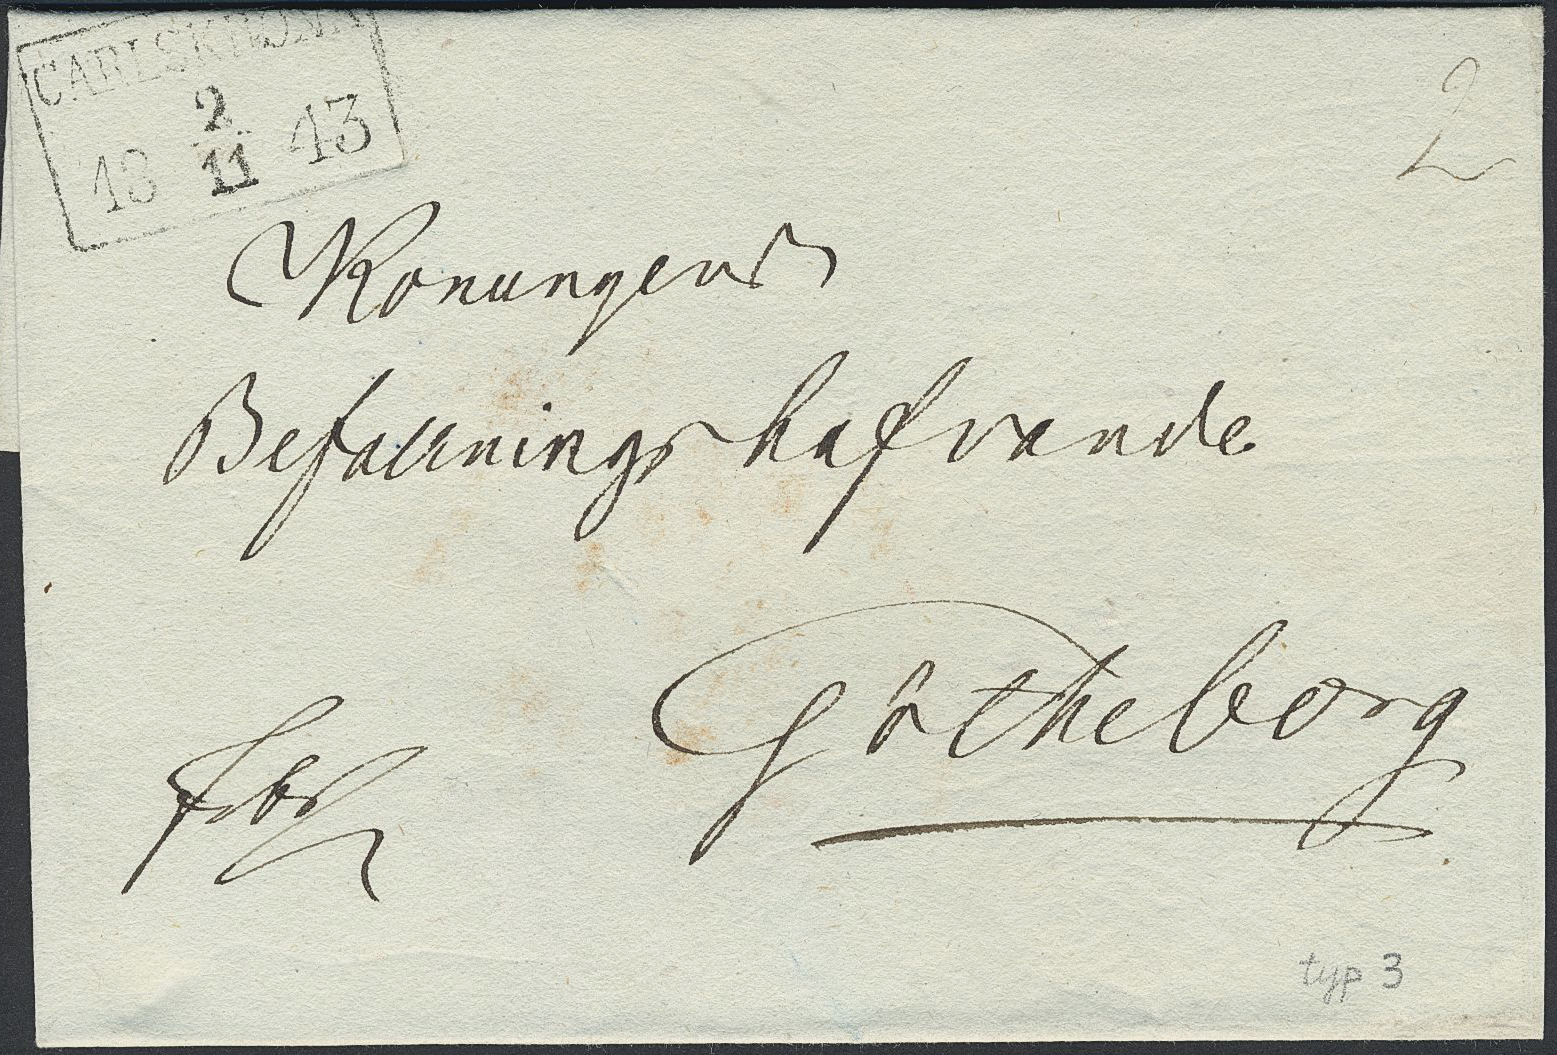 CARLSKRONA
2
18 43
11
2
Konungens
Befallningshafvande
Götheborg
frbr
typ 3